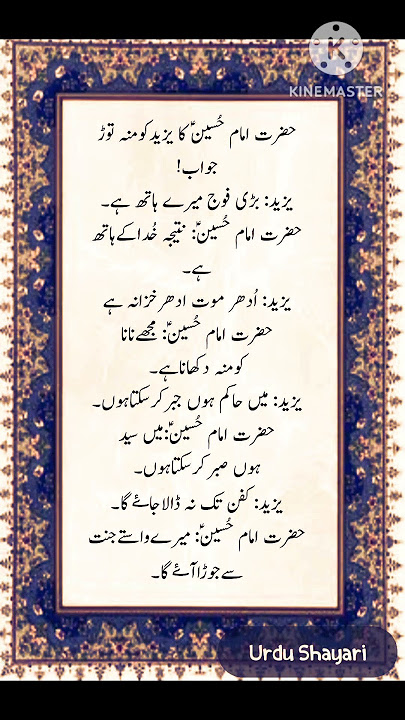 KINEMASTER
حضرت امام حُسینؑ کا یزید کو منہ توڑ
جواب!
یزید: بڑی فوج میرے ہاتھ ہے۔
حضرت امام حُسینؑ: نتیجہ خُدا کے ہاتھ
ہے۔
یزید: اُدھر موت ادھر خزانہ ہے
حضرت امام حُسینؑ: مجھے نانا
کو منہ دکھانا ہے۔
یزید: میں حاکم ہوں جبر کر سکتا ہوں۔
حضرت امام حُسینؑ: میں سید
ہوں صبر کر سکتا ہوں۔
یزید: کفن تک نہ ڈالا جائے گا۔
حضرت امام حُسینؑ: میرے واستے جنت
سے جوڑا آئے گا۔
Urdu Shayari